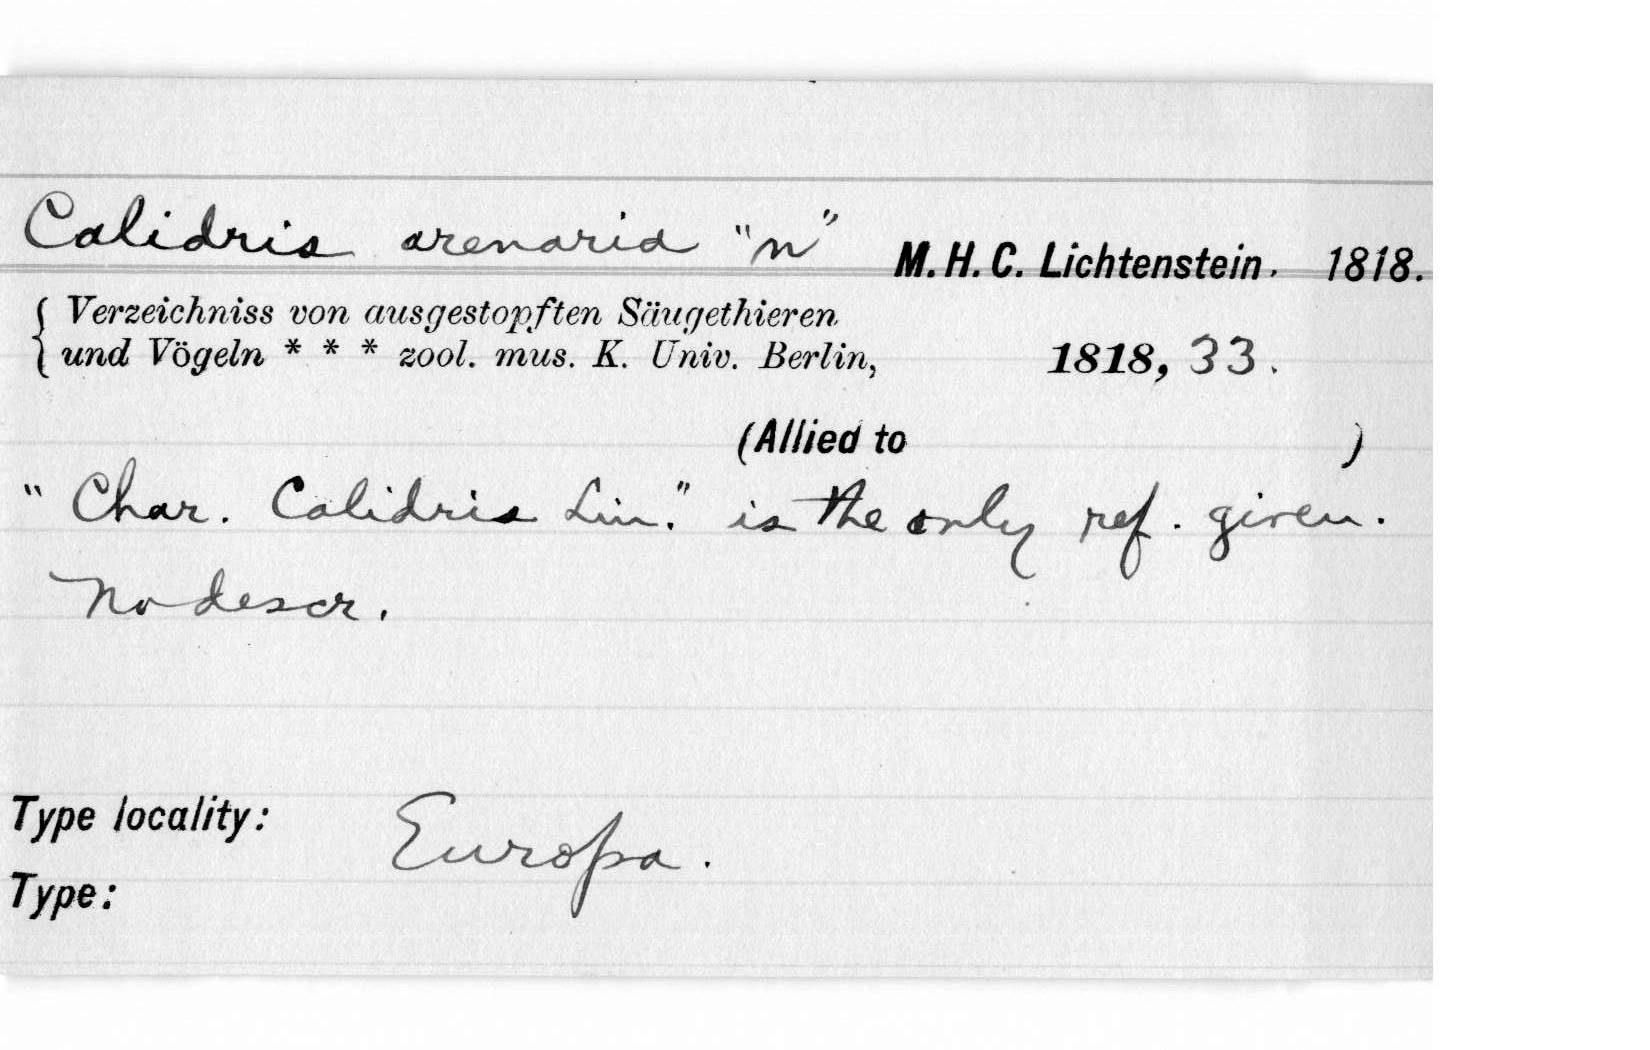 Calidris arenaria "n" M. H. C. Lichtenstein. 1818.
{ Verzeichniss von ausgestopften Säugethieren
und Vögeln * * * zool. mus. K. Univ. Berlin, 1818, 33.
(Allied to )
"Char. Calidris Lin." is the only ref. given.
No descr.
Type locality: Europa.
Type: